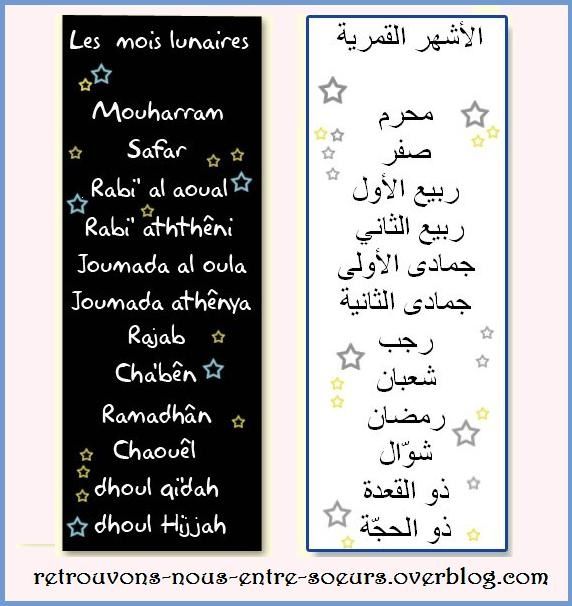 Les mois lunaires
Mouharram
Safar
Rabi' al aoual
Rabi' aththêni
Joumada al oula
Joumada athênya
Rajab
Cha'bên
Ramadhân
Chaouêl
dhoul qi'dah
dhoul Hijjah
الأشهر القمرية
محرم
صفر
ربيع الأول
ربيع الثاني
جمادى الأولى
جمادى الثانية
رجب
شعبان
رمضان
شوّال
ذو القعدة
ذو الحجّة
retrouvons-nous-entre-soeurs.overblog.com